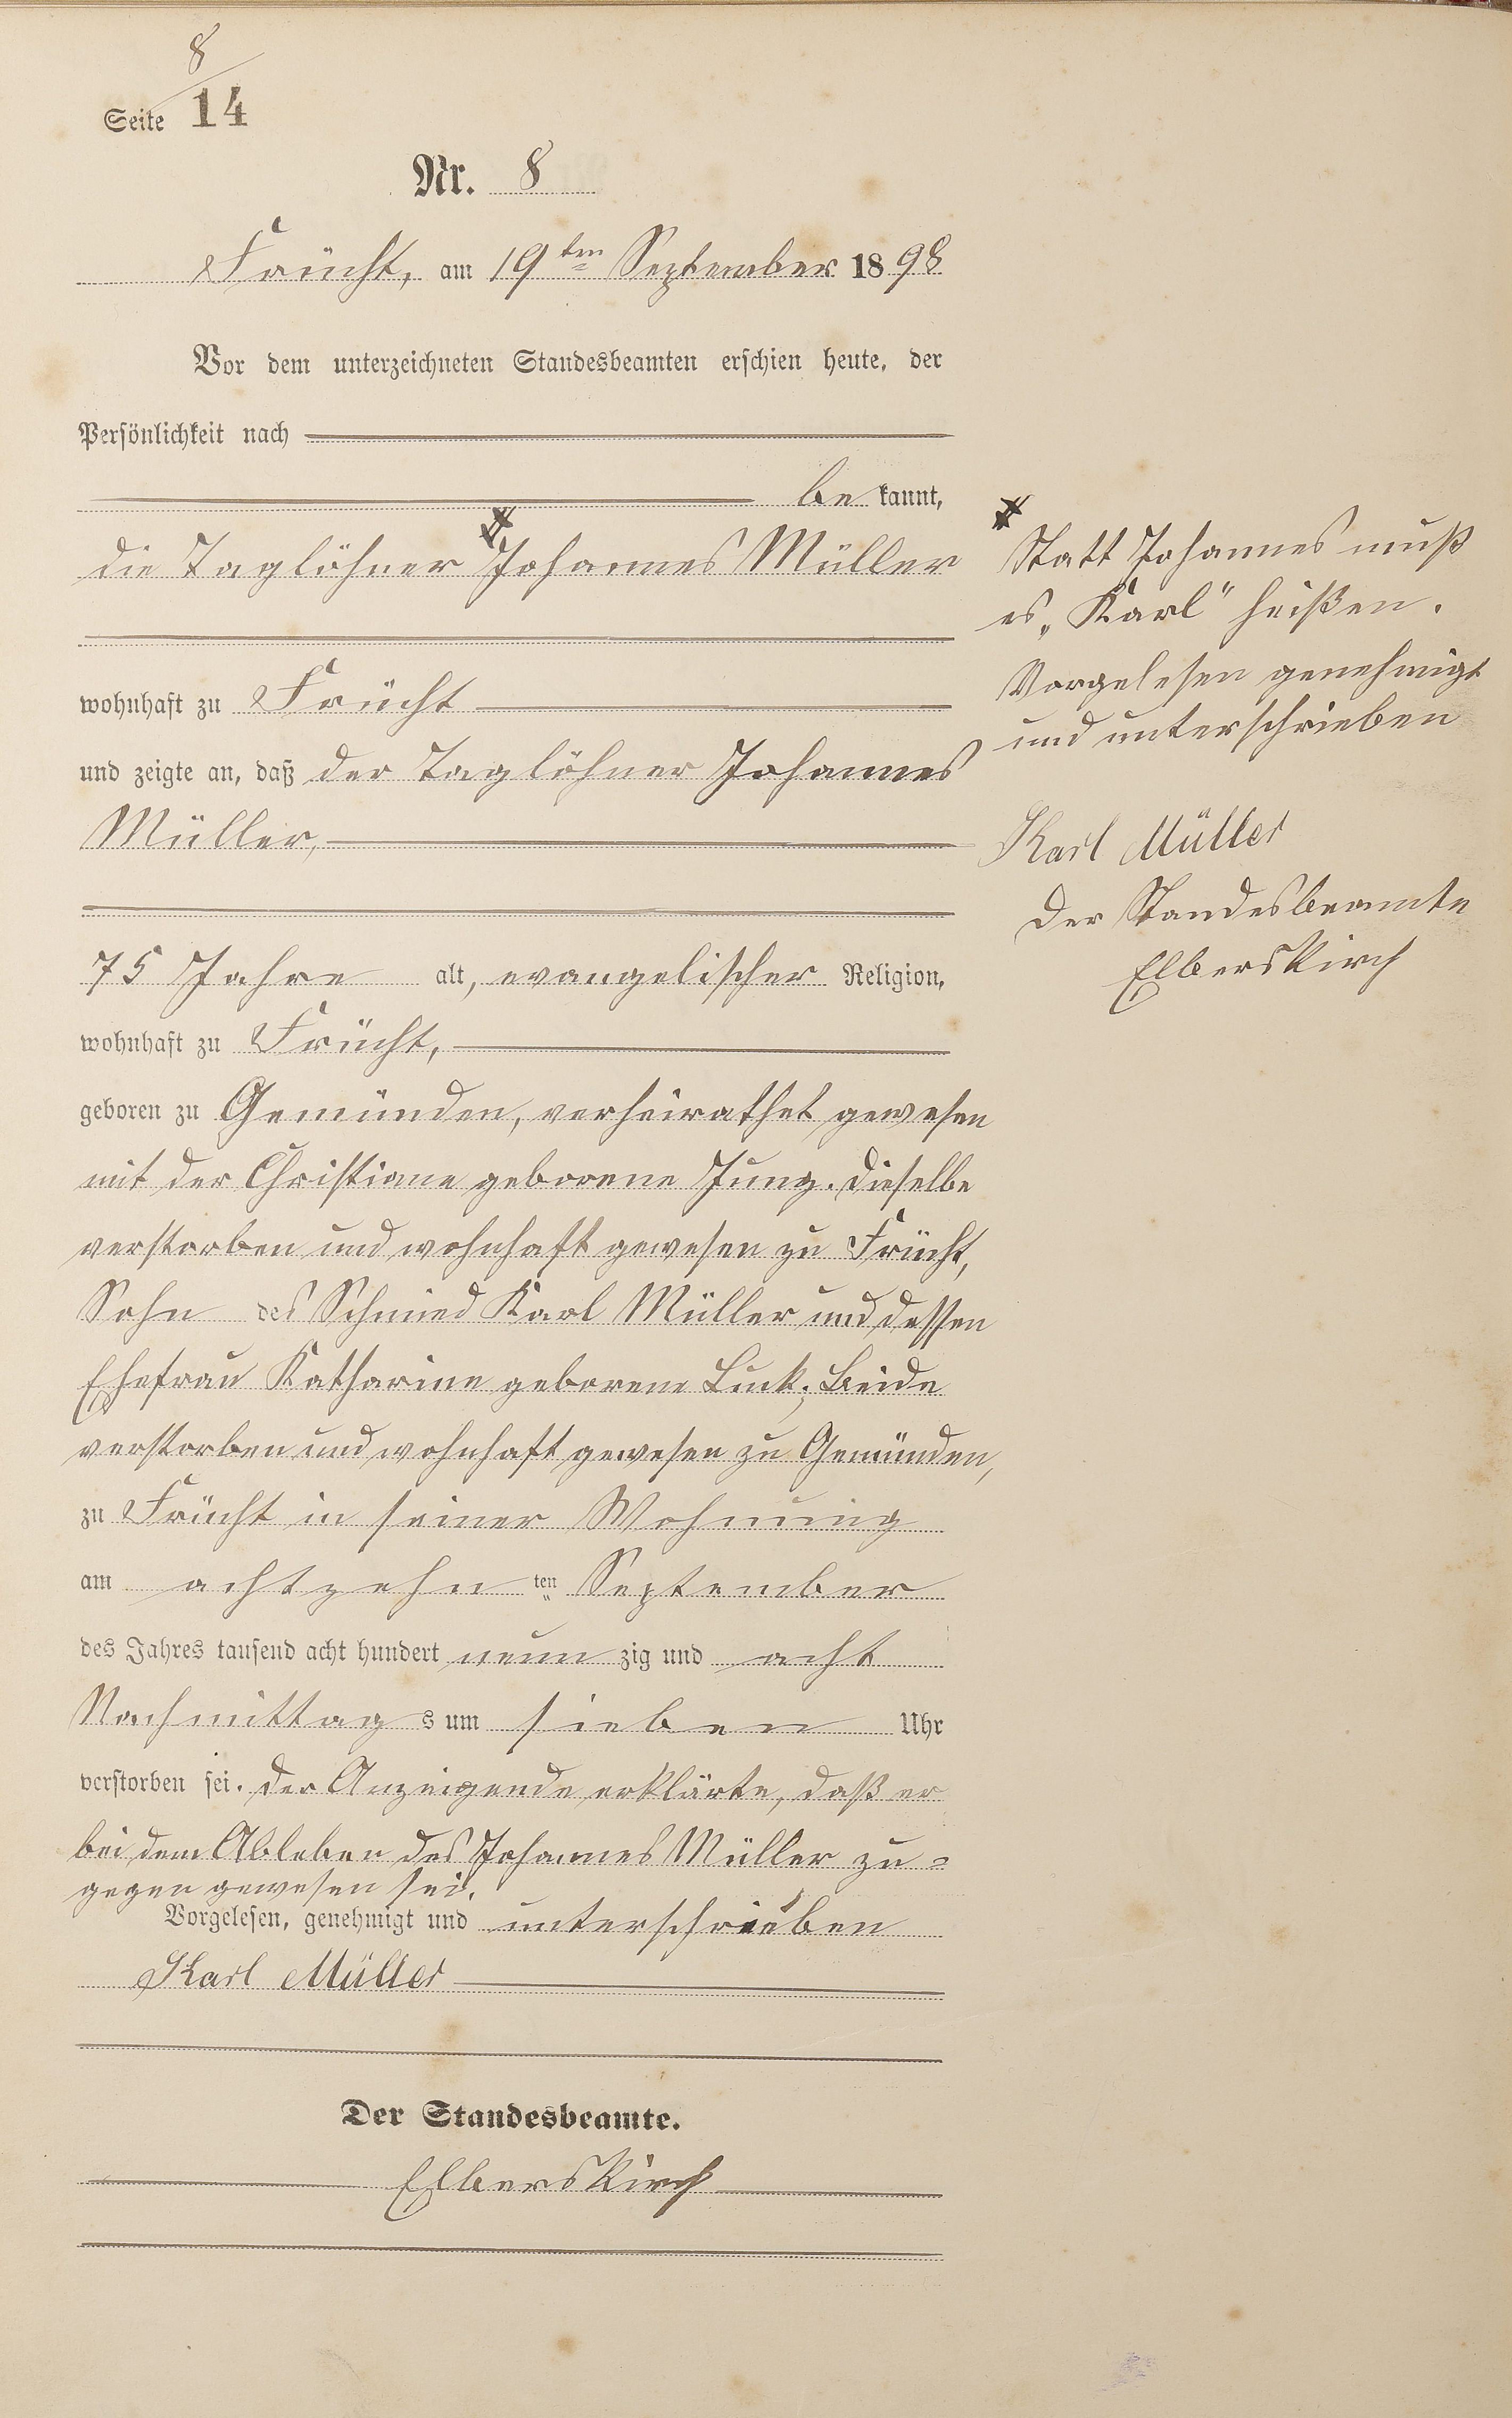 8
Seite 14
Nr. 8
Frücht, am 19ten September 1898
Vor dem unterzeichneten Standesbeamten erschien heute, der
Persönlichkeit nach
be kannt,
die Taglöhner Johannes Müller
wohnhaft zu Frücht
und zeigte an, daß der Taglöhner Johannes
Müller,
75 Jahre alt, evangelischer Religion,
wohnhaft zu Frücht,
geboren zu Gemünden, verheirathet gewesen
mit der Christiane geborene Jung. Dieselbe
verstorben und wohnhaft gewesen zu Frücht,
Sohn des Schmied Karl Müller und dessen
Ehefrau Katharine geborene Luck; Beide
verstorben und wohnhaft gewesen zu Gemünden,
zu Frücht in seiner Wohnung
am achtzehn ten September
des Jahres tausend acht hundert neun zig und acht
Nachmittag s um sieben Uhr
verstorben sei. Der Anzeigende erklärte, daß er
bei dem Ableben des Johannes Müller zu=
gegen gewesen sei.
Vorgelesen, genehmigt und unterschrieben
Karl Müller
Der Standesbeamte.
Elberskirch
Statt Johannes muß
es „Karl" heißen.
Vorgelesen genehmigt
und unterschrieben
Karl Müller
Der Standesbeamte
Elberskirch